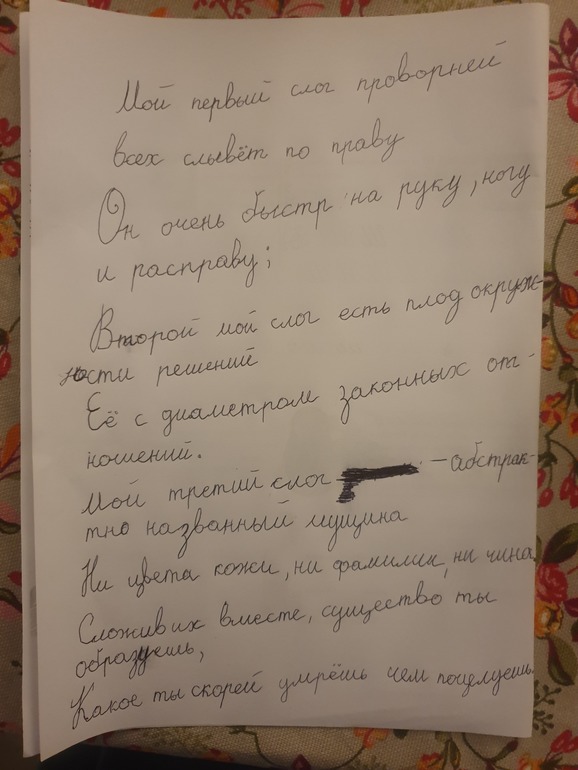 Мой первый слог проворней
всех слывёт по праву
Он очень быстр на руку, ногу
и расправу;
Второй мой слог есть плод окруж-
ности решений
Её с диаметром законных от-
ношений.
Мой третий слог — абстрак-
тно названный мущина
Ни цвета кожи, ни фамилии, ни чина
Сложив их вместе, существо ты
образуешь,
Какое ты скорей умрёшь чем поцелуешь.